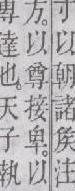 寸以朝諸侯注
方。以尊接卑。以
達也。天子執